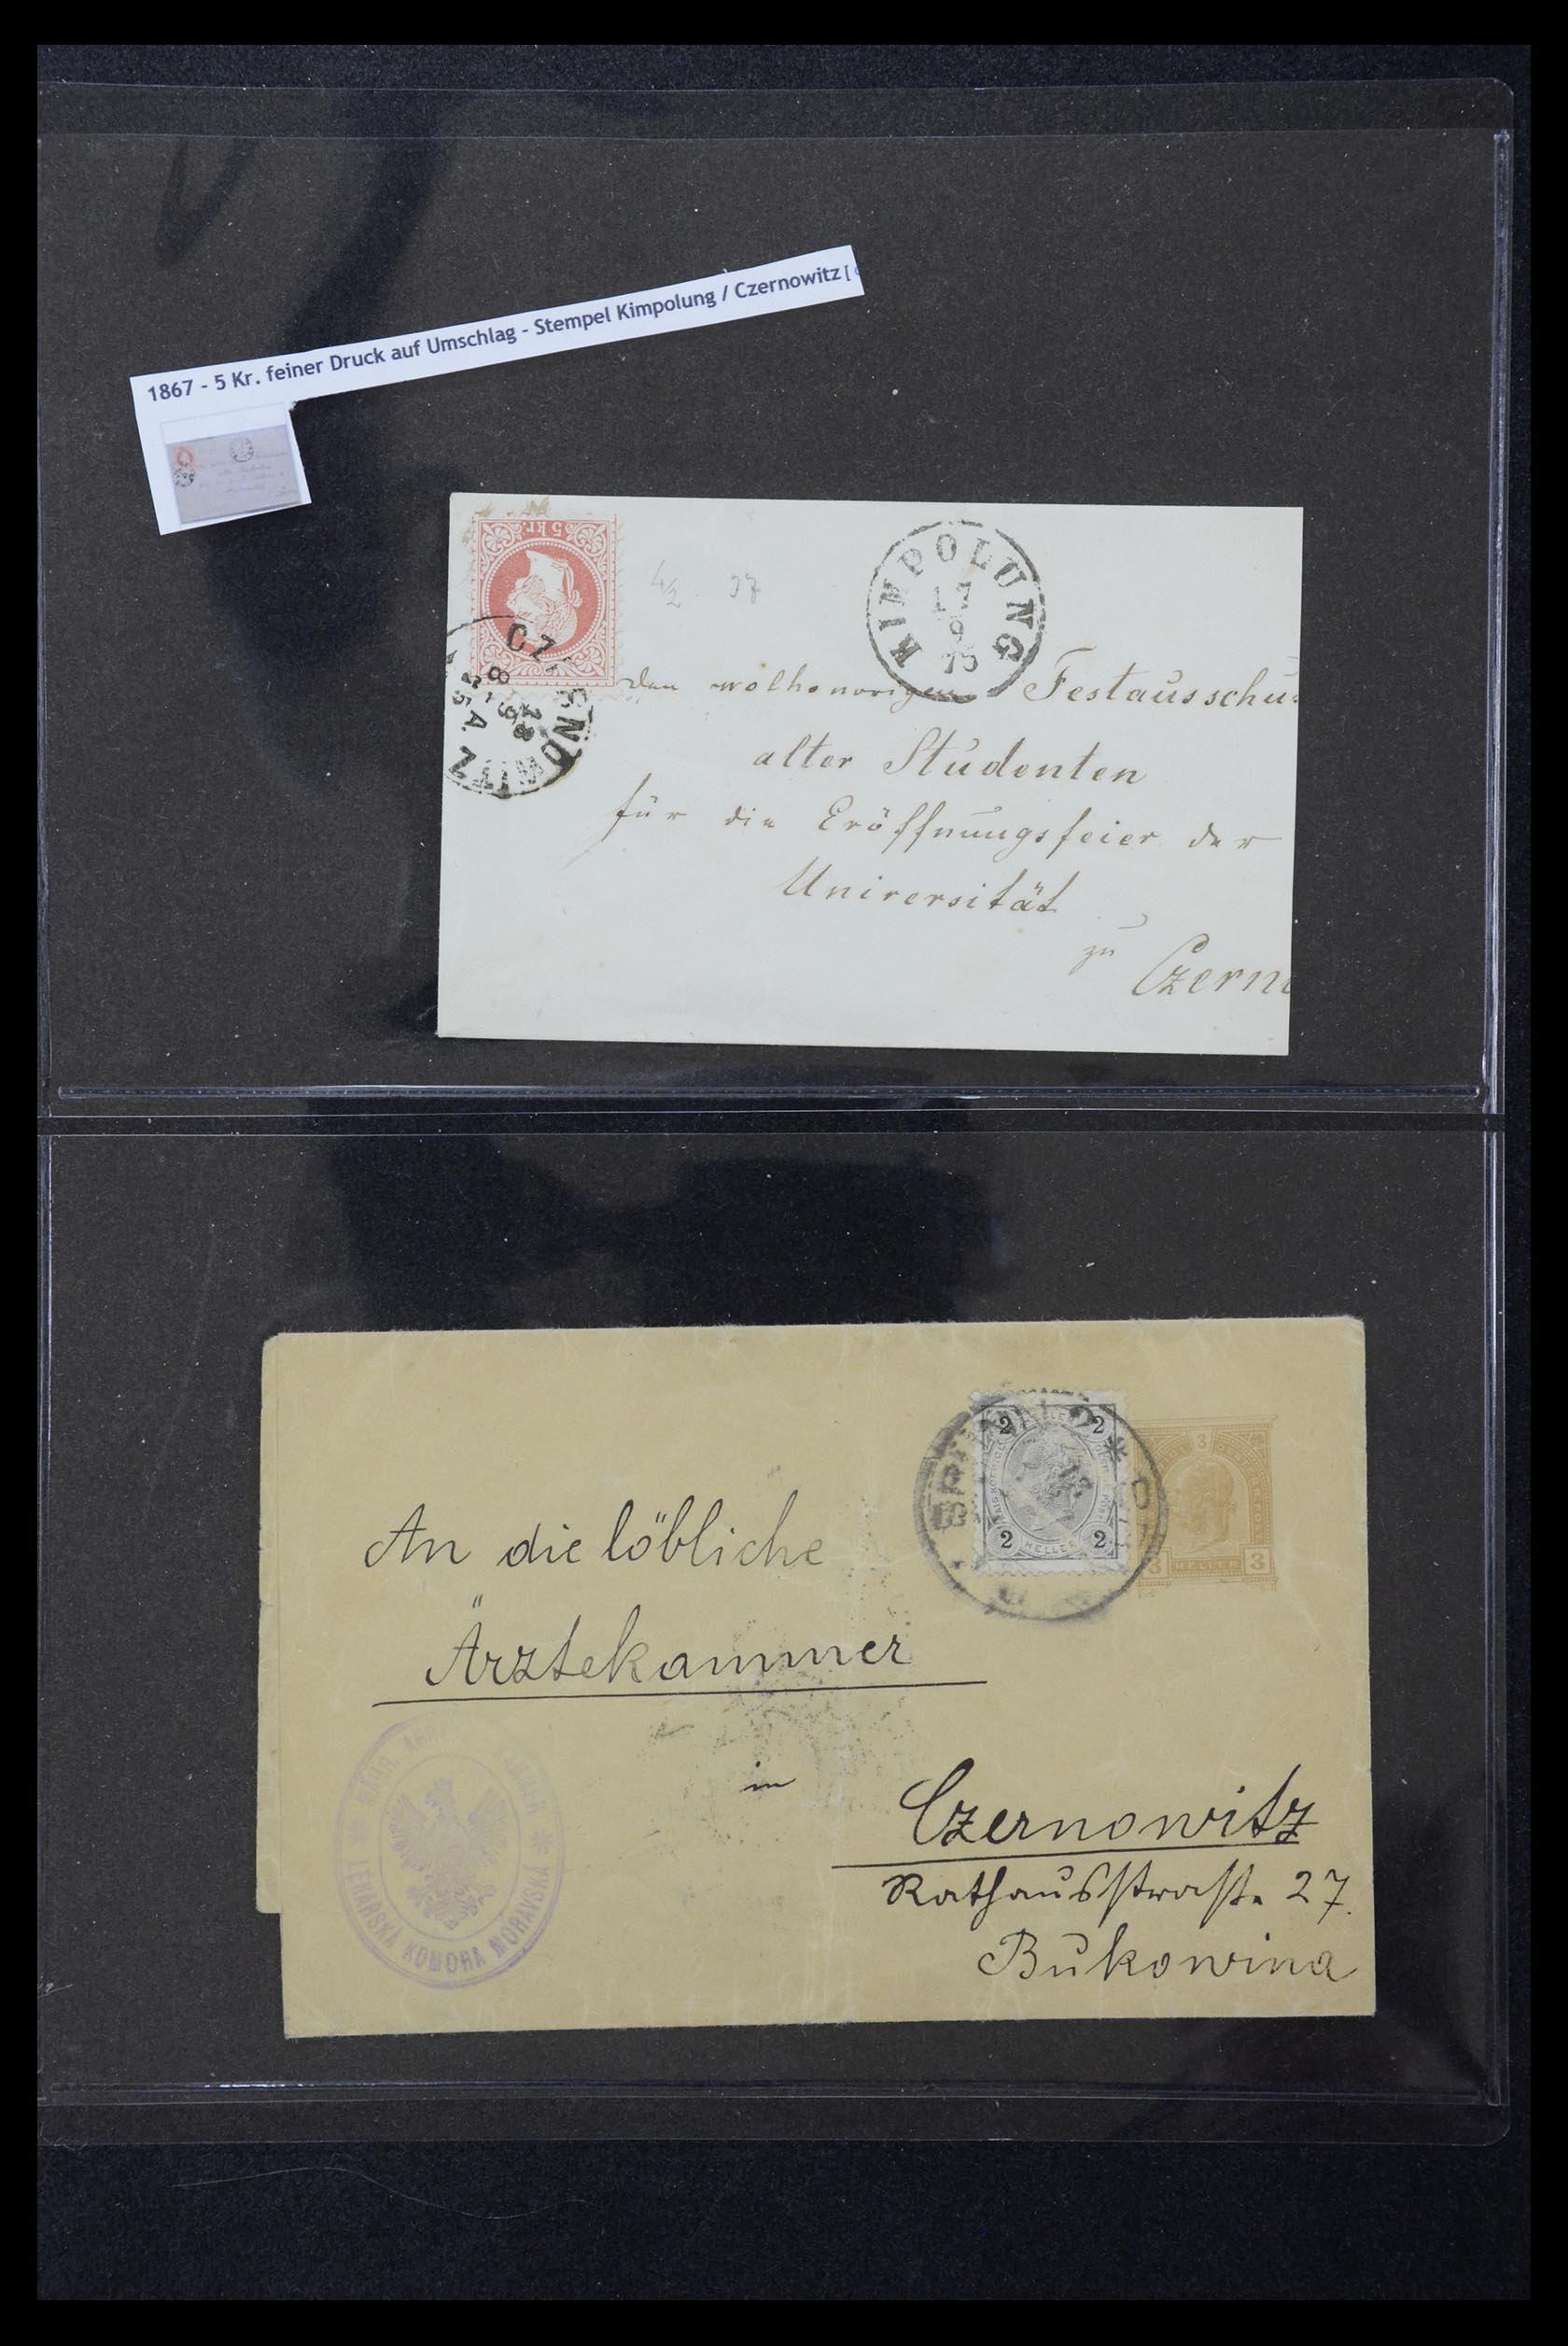 1867 - 5 Kr. feiner Druck auf Umschlag - Stempel Kimpolung / Czernowitz [
5 kr.
KIMPOLUNG
17
9
75
CZERNOWITZ
18
9
75
8 A.
den wolhonorigen Festausschu
alter Studenten
für die Eröffnungsfeier der
Universität
zu
Czern
2 2
2 HELLER 2
3
3 HELLER 3
BRÜNN 2 *
An die löbliche
Ärztekammer
in
Czernowitz
Rathausstraße 27.
Bukowina
LÉKAŘSKÁ KOMORA MORAVSKÁ